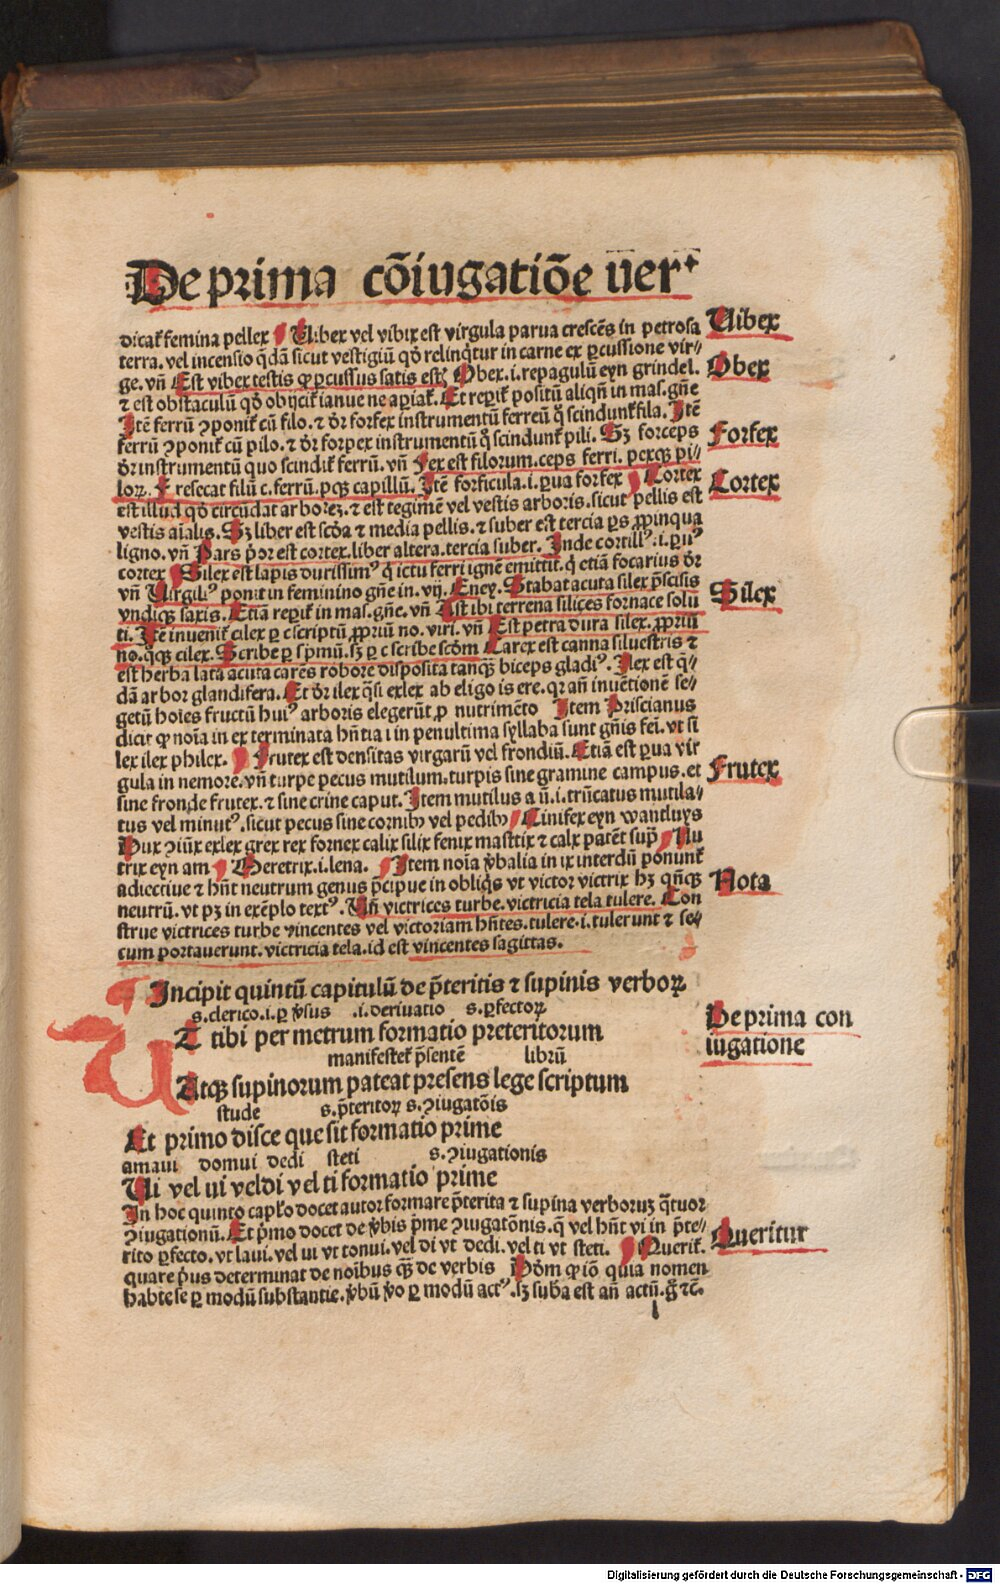 De prima cõiugatiõe ver⁺
dicat᷑ femina pellex Vibex vel vibix est virgula parua crescẽs in petrosa
Vibex
terra. vel incensio q̃dã sicut vestigiũ qđ relinq̃tur in carne ex ꝑcussione vir⸗
ge. vñ Est vibex testis ꝙ ꝑcussus satis estꝫ Obex .i. repagulũ eyn grindel.
Obex
⁊ est obstaculũ qđ obijcit᷑ ianue ne aꝑiat᷑. Et reꝑit᷑ positũ aliqñ in mas. gñe
Itẽ ferrũ ↄponit᷑ cũ filo. ⁊ đr forfex instrumentũ ferreũ q̊ scindunt᷑ fila. Itẽ
ferrũ ↄponit᷑ cũ pilo. ⁊ đr forpex instrumentũ q̊ scindunt᷑ pili. Sꝫ forceps
Forfex
đr instrumentũ quo scindit᷑ ferrũ. vñ Fex est filorum. ceps ferri. pexqꝫ pi⸗
loꝝ. F resecat filũ c. ferrũ. pqꝫ capillũ. Itẽ forficula .i. ꝑua forfex Cortex
Cortex
est illud qđ circũdat arboreꝫ. ⁊ est tegimẽ vel vestis arboris. sicut pellis est
vestis aĩalis. Sꝫ liber est scđa ⁊ media pellis. ⁊ suber est tercia ꝑs ꝓpinqua
ligno. vñ Pars p̃or est cortex. liber altera. tercia suber. Inde cortillꝰ .i. ꝑuꝰ
cortex Silex est lapis durissimꝰ q̇ ictu ferri ignẽ emittit. q̇ etiã focarius đr
vñ Virgiliꝰ ponit in feminino gñe in. vij. Eney. Stabat acuta silex p̃scisis
Silex
vndiqꝫ saxis. Etiã reꝑit᷑ in mas. gñe. vñ Ast ibi terrena silices fornace solu
ti. Itẽ inuenit᷑ cilex ꝑ c scriptũ ꝓpriũ no. viri. vñ Est petra dura silex. ꝓpriũ
no. q̊qꝫ cilex. Scribe ꝑ s p̃mũ. sꝫ ꝑ c scribe scđm Carex est canna siluestris ⁊
est herba lata acuta carẽs robore disposita tanqꝫ̃ biceps gladiꝰ. Ilex est q̇⸗
dã arbor glandifera. Et đr ilex q̃si exlex ab eligo is ere. qꝛ añ inuẽtionẽ se⸗
getũ hoĩes fructũ huiꝰ arboris elegerũt ꝓ nutrimẽto Item Priscianus
dicit ꝙ noĩa in ex terminata hñtia i in penultima syllaba sunt gñis fei. vt si
lex ilex philex. Frutex est densitas virgarũ vel frondiũ. Etiã est ꝑua vir
gula in nemore. vñ turpe pecus mutilum. turpis sine gramine campus. et
Frutex
sine fronde frutex. ⁊ sine crine caput. Item mutilus a ũ .i. trũcatus mutila⸗
tus vel minutꝰ. sicut pecus sine cornibꝫ vel pedibꝫ Cinifex eyn wantluys
Pux ↄiũx exlex grex rex fornex calix silix fenix mastix ⁊ calx patẽt sup̃ Nu
trix eyn am Meretrix .i. lena. Item noĩa v̓balia in ix interdũ ponunt᷑
adiectiue ⁊ hñt neutrum genus p̃cipue in obliq̇s vt victor victrix hꝫ qñqꝫ
Nota
neutrũ. vt pꝫ in exẽplo textꝰ. Vñ victrices turbe. victricia tela tulere. Con
strue victrices turbe vincentes vel victoriam hñtes. tulere .i. tulerunt ⁊ se⸗
cum portauerunt. victricia tela. id est vincentes sagittas.
Incipit quintũ capitulũ de p̃teritis ⁊ supinis verboꝝ
s. clerico .i. ꝑ v̓sus .i. deriuatio s. ꝑfectoꝝ
UT tibi per metrum formatio preteritorum
De prima con
iugatione
manifestet᷑ p̃sentẽ librũ
Atqꝫ supinorum pateat presens lege scriptum
stude s. p̃teritoꝝ s. ↄiugatõis
Et primo disce que sit formatio prime
amaui domui dedi steti s. ↄiugationis
Vi vel ui vel di vel ti formatio prime
In hoc quinto cap̃lo docet autor formare p̃terita ⁊ supina verboruꝫ q̃tuor
ↄiugationũ. Et p̃mo docet de v̓bis p̃me ↄiugatõnis. q̃ vel hñt vi in p̃te⸗
rito ꝑfecto. vt laui. vel ui vt tonui. vel di vt dedi. vel ti vt steti. Querit᷑.
Queritur
quare p̃us determinat de noĩbus qꝫ̃ de verbis Dđm ꝙ iõ quia nomen
habet se ꝑ modũ substantie. v̓bũ v̓o ꝑ modũ actꝰ. sꝫ suba est añ actũ. g̃ ⁊c̃.
Digitalisierung gefördert durch die Deutsche Forschungsgemeinschaft - DFG